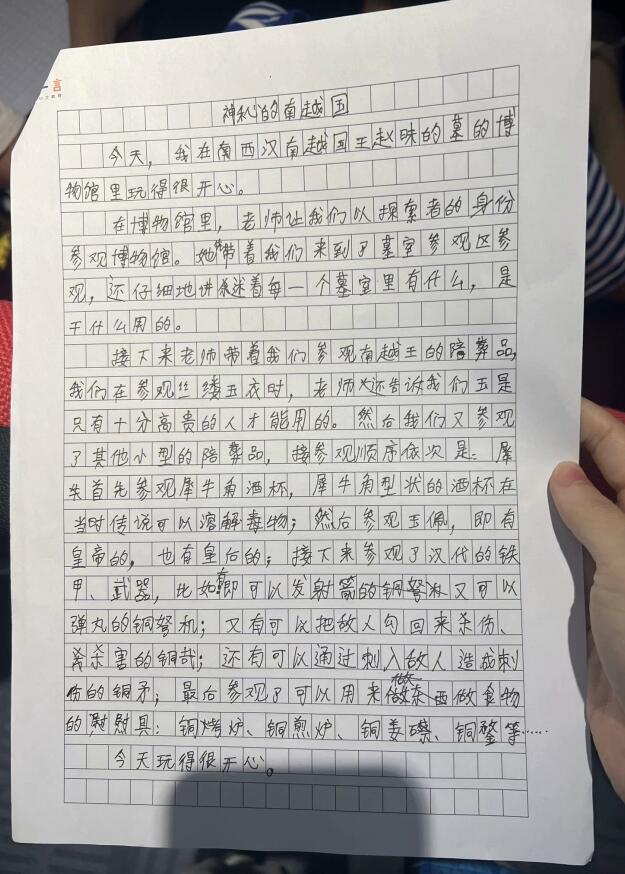 一言
神秘的南越国
今天，我在南西汉南越国王赵眜的墓的博
物馆里玩得很开心。
在博物馆里，老师让我们以探索者的身份
参观博物馆。她带着我们来到了墓室参观区参
观，还仔细地讲述着每一个墓室里有什么，是
干什么用的。
接下来老师带着我们参观南越王的陪葬品，
我们在参观丝缕玉衣时，老师还告诉我们玉是
只有十分高贵的人才能用的。然后我们又参观
了其他小型的陪葬品，接参观顺序依次是：
首先参观犀牛角酒杯，犀牛角型状的酒杯在
当时传说可以溶解毒物；然后参观玉佩，即有
皇帝的，也有皇后的；接下来参观了汉代的铁
甲、武器，比如有即可以发射箭的铜弩又可以
弹丸的铜弩机；又有可以把敌人勾回来杀伤、
杀害的铜哉；还有可以通过刺入敌人造成刺
伤的铜矛；最后参观了可以用来做东西做食物
的具：铜烤炉、铜煎炉、铜姜礤、铜鍪等……
今天玩得很开心。